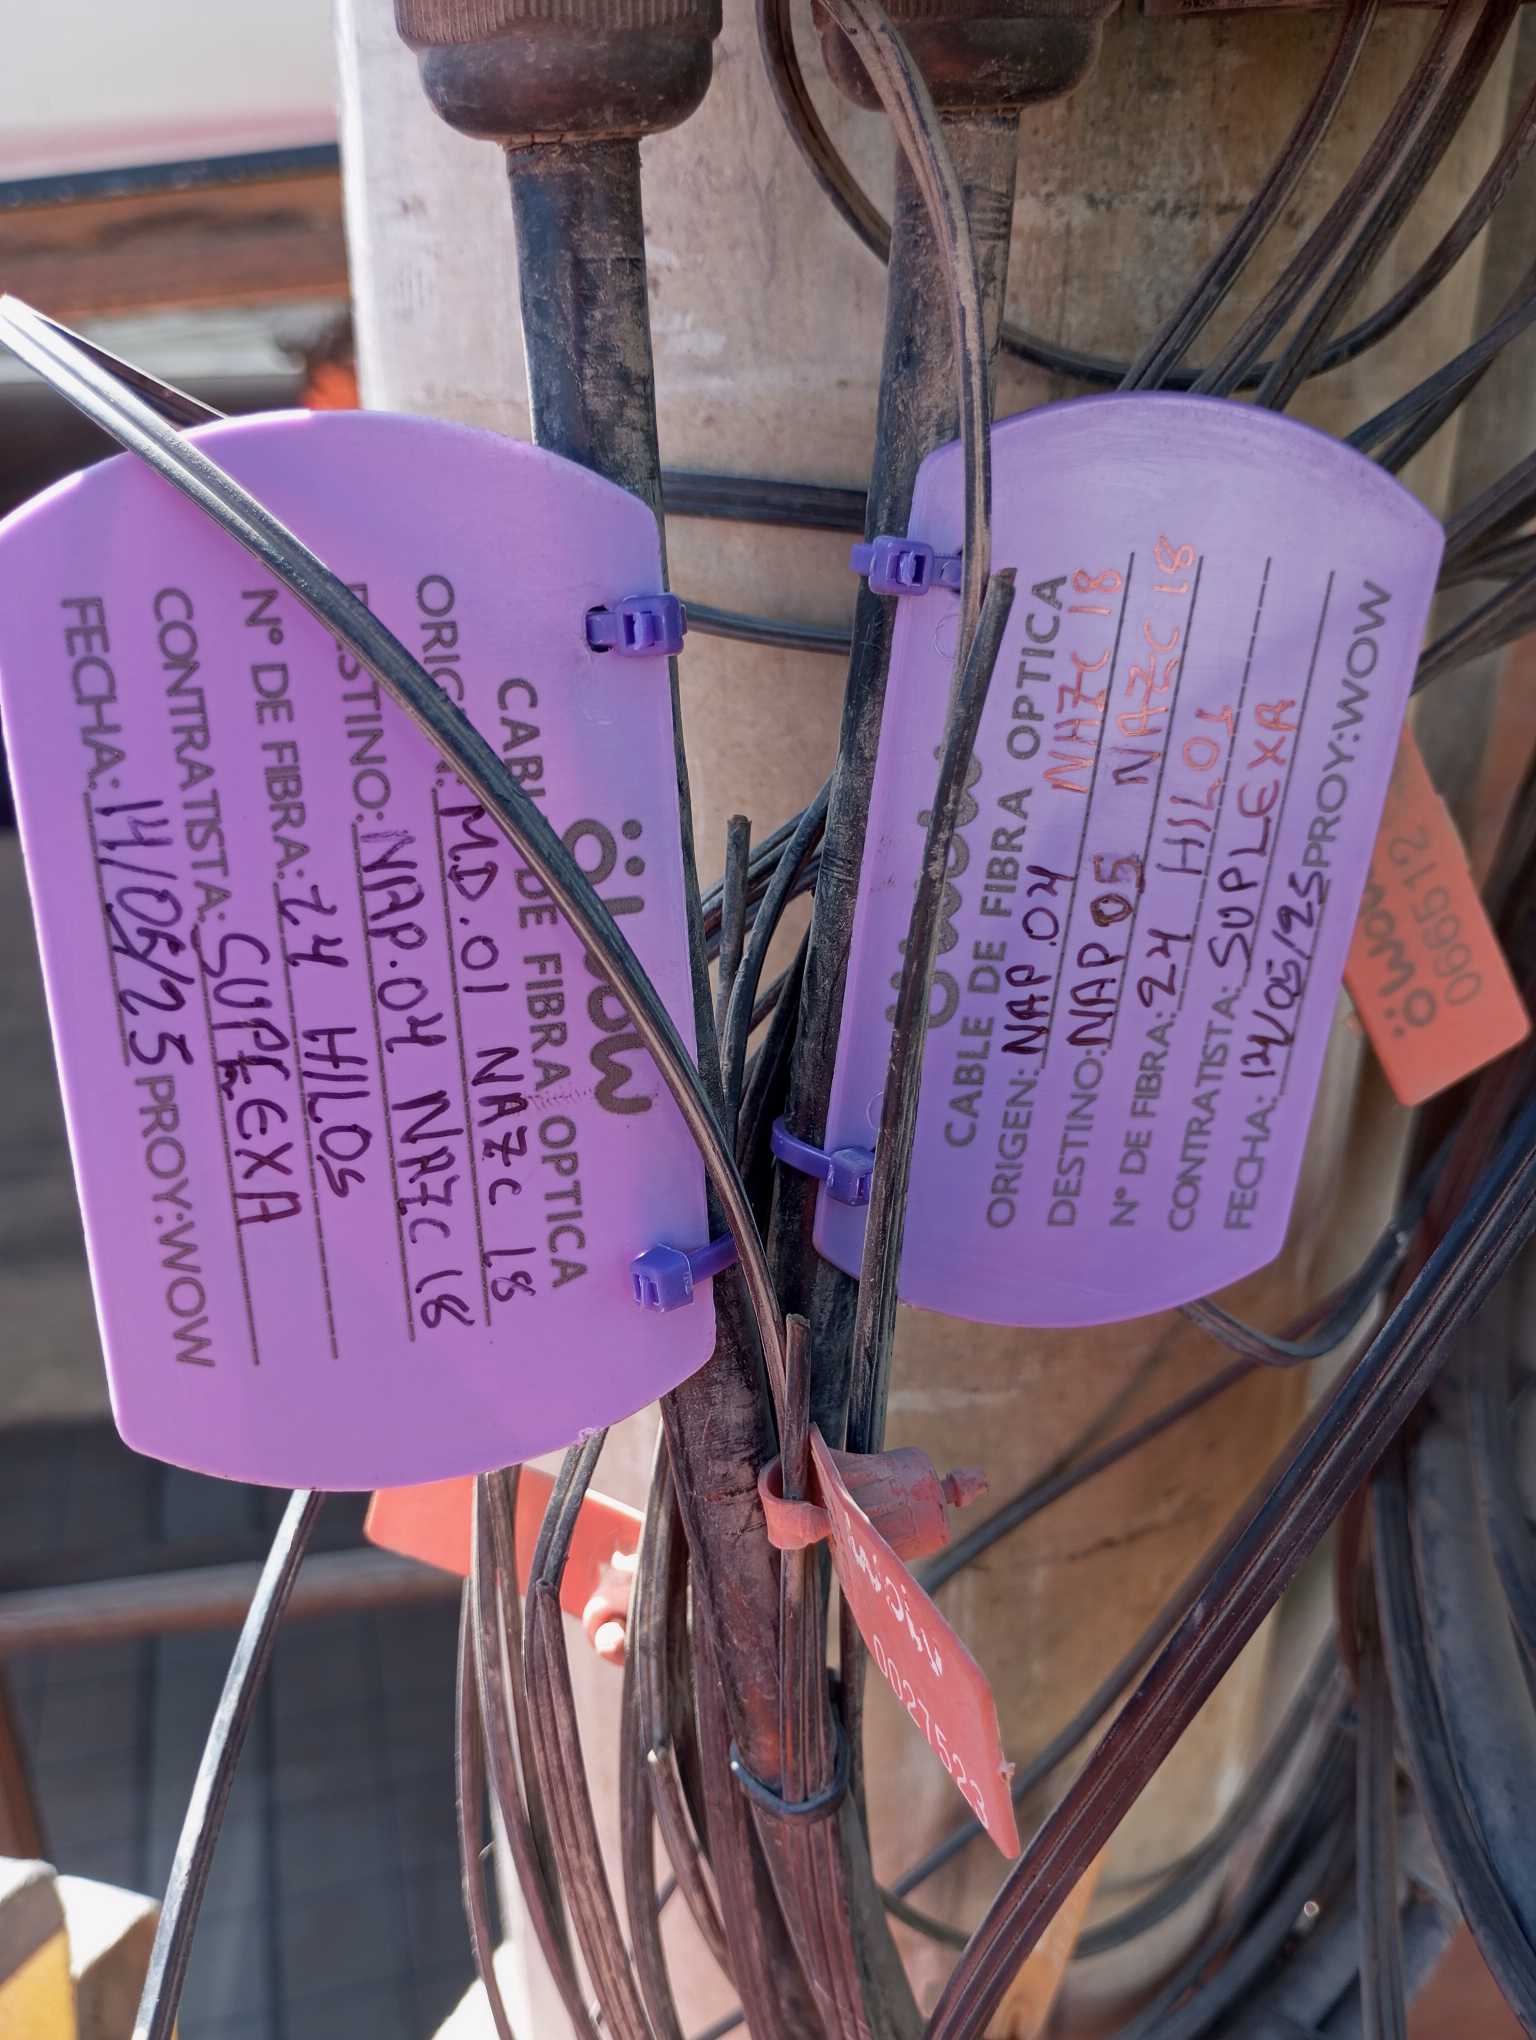 wow
CABLE DE FIBRA OPTICA
ORIGEN: M.D.01 NAZC 18
DESTINO: NAP.04 NAZC 18
N° DE FIBRA: 24 HILOS
CONTRATISTA: SUPLEXA
FECHA: 14/05/25 PROY:WOW
CABLE DE FIBRA OPTICA
ORIGEN: NAP.04 NAZC 18
DESTINO: NAP05 NAZC 18
N° DE FIBRA: 24 HILOS
CONTRATISTA: SUPLEXA
FECHA: 14/05/25 PROY:WOW
wow
0665112
0027523